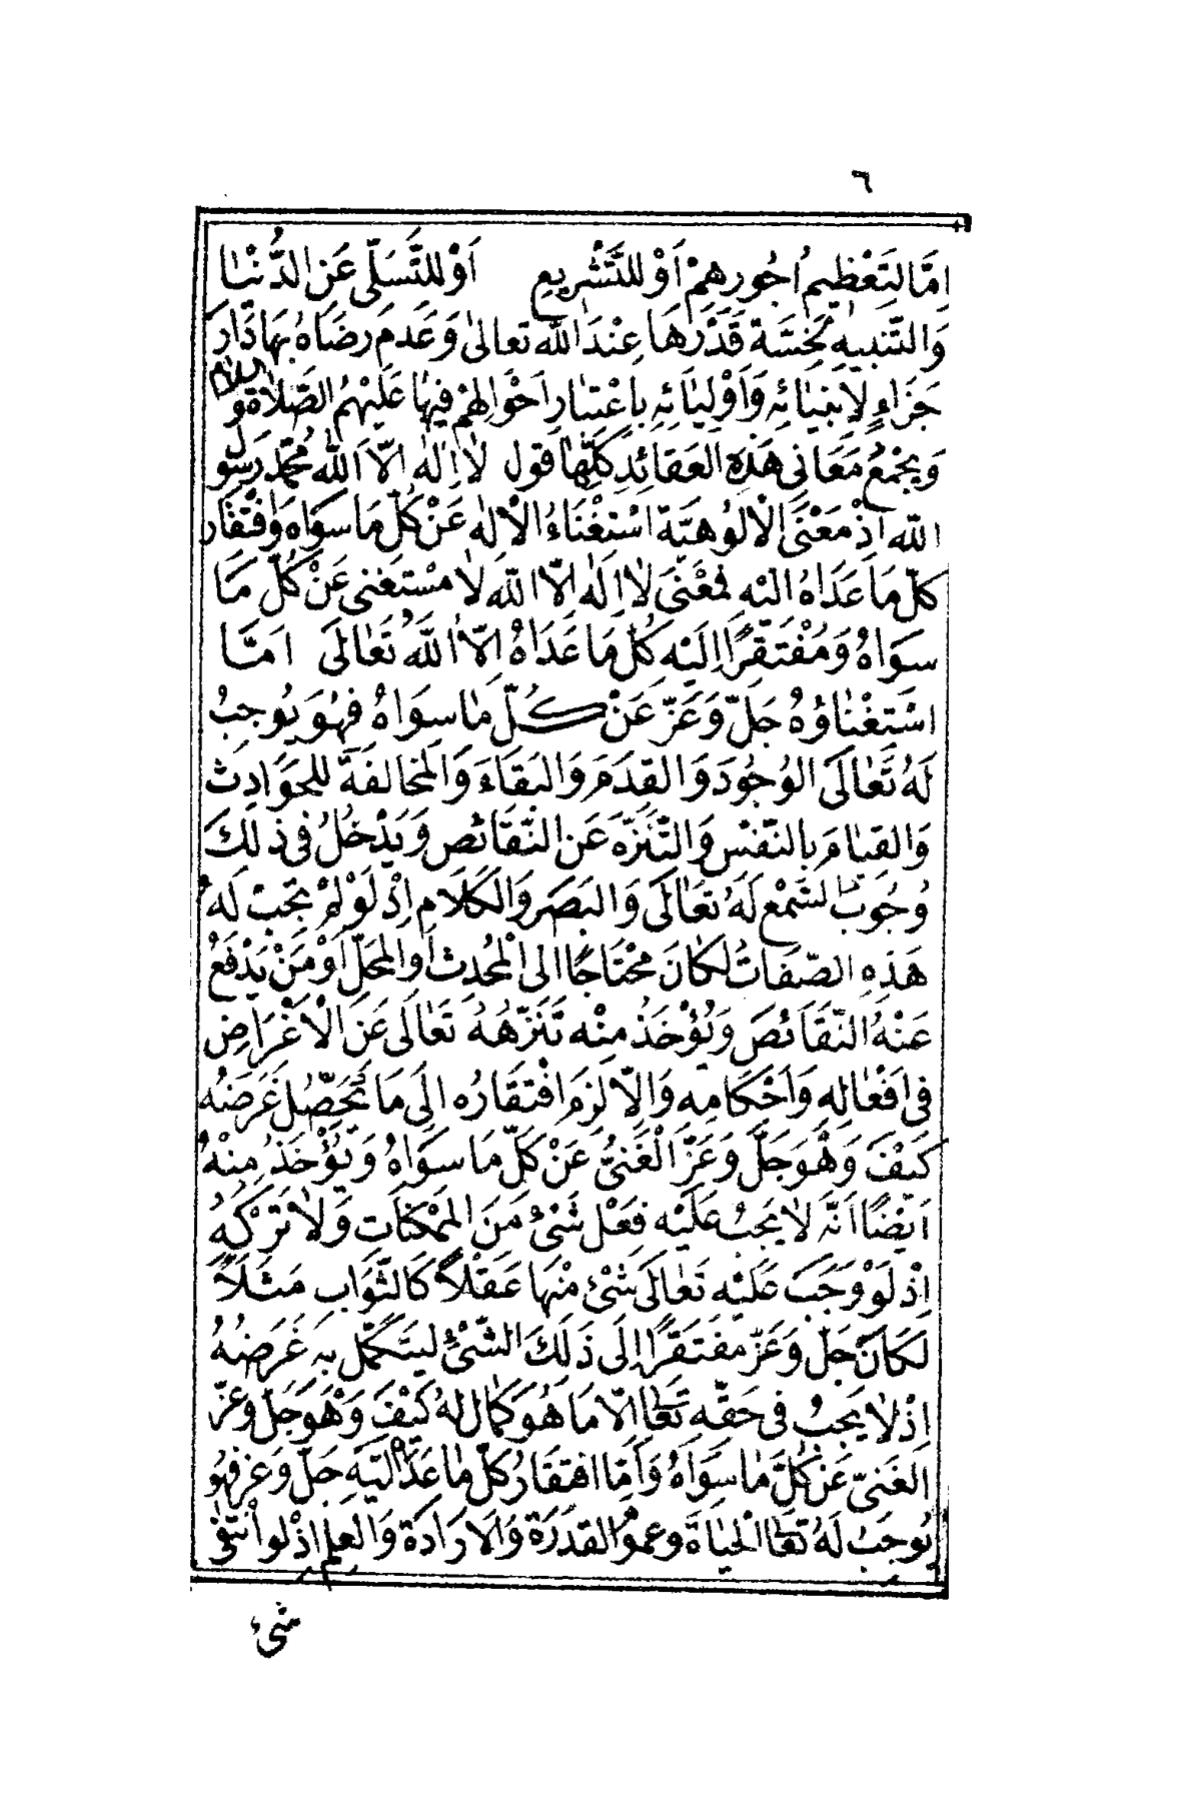 ٦
اِمَّا لتَعْظِيمِ اُجُورِهِمْ اَوْ للتَّشْرِيعِ اَوْ للتَّسَلّى عَنِ الدُّنْيَا
وَالتَّنْبِيهِ لِخِسَّةِ قَدْرِهَا عِنْدَ اللّٰهِ تعالىٰ وَعَدَمِ رضَاهُ بِهَا دَارَ
جَزَاءٍ لِاَنْبِيَائِهِ وَاَوْلِيَائِهِ بِاعْتبَارِ اَحْوَالِهِمْ فِيهَا عَلَيْهِمُ الصَّلاٰةُ وَ السلام
وَيَجْمَعُ مَعَانِى هٰذِهِ العَقَائِدِ كُلِّهَا قول لاٰ اِلٰهَ الاّ اللّٰهُ مُحَمَّد رَسُو
ل اللّٰهِ اذْ مَعْنَى الْاُلُوهيَّة اسْتغْنَاءُ الْاِلٰهِ عَنْ كُلّ مَا سوَاه وَافْتقَار
كلّ مَا عَدَاهُ اليْهِ فمَعْنَى لاٰ اِلٰهَ الاّ اللّٰهُ لاٰ مسْتغنى عَنْ كُلّ مَا
سوَاهُ وَمُفْتَقرًا اِلَيْهِ كُلّ مَا عَدَاهُ اِلاَّ اللّٰهُ تَعَالَى اَمّا
اسْتِغْنَاؤُهُ جَلَّ وَعَزّ عَنْ كُلّ مَا سِوَاهُ فهُوَ يُوجِبُ
لَهُ تَعَالَى الوُجُودَ وَالقِدَمَ وَالبَقَاءَ وَالمُخَالفَةَ للحَوَادِثِ
وَالقيَامَ بِالنَّفْسِ وَالتَّنَزّهَ عَنِ النَّقَائصِ وَيَدْخُلُ فى ذٰلكَ
وُجُوبُ السَّمْعِ لَهُ تعَالَى وَالبَصَرِ وَالكَلَامِ اِذْ لَوْ لَمْ تَجِبْ لَهُ
هٰذِهِ الصّفَاتُ لكَانَ مُحْتَاجًا الى الْمُحْدِثِ اَوِ المَحَلّ اَوْ مَنْ يَدْفَعُ
عَنْهُ النَّقَائصَ وَيُؤْخَذُ مِنْه تَنَزّهُهُ تَعَالَى عَنِ الْاَغْرَاضِ
فى اَفْعَالِهِ وَاَحْكَامِهِ وَاِلاّ لَزمَ افْتقَارُه اِلَى مَا يُحَصِّلُ غَرَضَهُ
كَيْفَ وَهُوَ جَلَّ وَعَزّ الْغَنىُّ عَنْ كلّ مَا سوَاهُ وَيُؤْخَذُ مِنْهُ
اَيْضًا اَنَّهُ لاٰ يَجِبُ عَلَيْه فعْل شَىْءٍ مِنَ المُمْكنَاتِ وَلاٰ تَرْكُهُ
اِذْ لَوْ وَجَبَ عَلَيْه تَعَالَى شَىْءٌ مِنْهَا عَقْلاً كَالثَّوَابِ مَثَلاً
لَكَانَ جَلّ وَعَزّ مفتَقرًا اِلَى ذٰلِكَ الشَّىْءِ ليَتَكَمَّل بِهِ غَرَضُهُ
اِذْ لاٰ يَجِبُ فى حَقّهِ تَعَا اِلاّ مَا هُوَ كمَالٌ لهُ كَيْفَ وَهُوَ جَلّ وعزّ
الغَنىّ عَنْ كُلّ مَا سِوَاهُ وَاَمّا افتقَارُ كلّ مَا عَدَاهُ اليَهِ جَلّ وَعَز فهُو
يُوجِبُ لَهُ تعَا الحَيَاةَ وَعمومَ القُدْرَةِ وَالاِرَادَة وَالعِلْمِ اذْ لَو انْتَفى
شىء